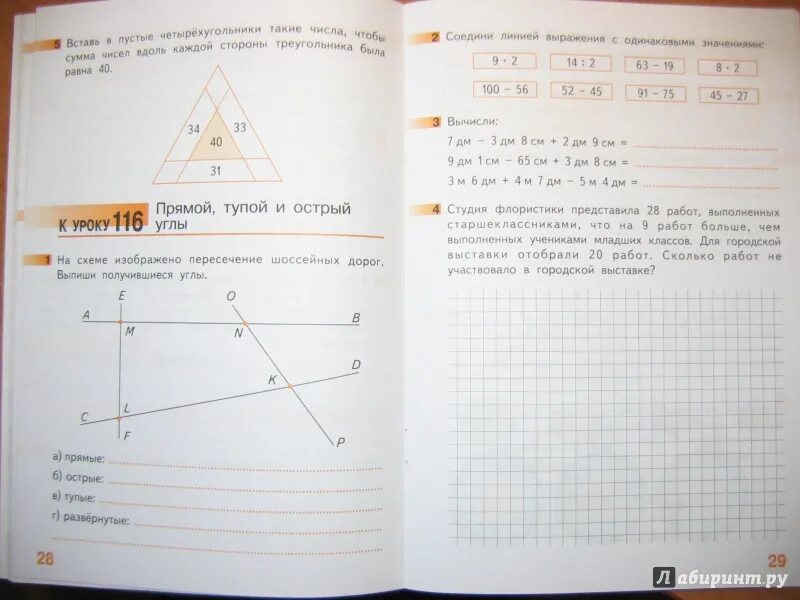 5 Вставь в пустые четырёхугольники такие числа, чтобы
сумма чисел вдоль каждой стороны треугольника была
равна 40.
34 33
40
31
К УРОКУ 116 Прямой, тупой и острый
углы
1 На схеме изображено пересечение шоссейных дорог.
Выпиши получившиеся углы.
E O
A M N B
K D
C L
F P
а) прямые:
б) острые:
в) тупые:
г) развёрнутые:
28
2 Соедини линией выражения с одинаковыми значениями:
9 · 2 14 : 2 63 – 19 8 · 2
100 – 56 52 – 45 91 – 75 45 – 27
3 Вычисли:
7 дм – 3 дм 8 см + 2 дм 9 см =
9 дм 1 см – 65 см + 3 дм 8 см =
3 м 6 дм + 4 м 7 дм – 5 м 4 дм =
4 Студия флористики представила 28 работ, выполненных
старшеклассниками, что на 9 работ больше, чем
выполненных учениками младших классов. Для городской
выставки отобрали 20 работ. Сколько работ не
участвовало в городской выставке?
29
Лабиринт.ру